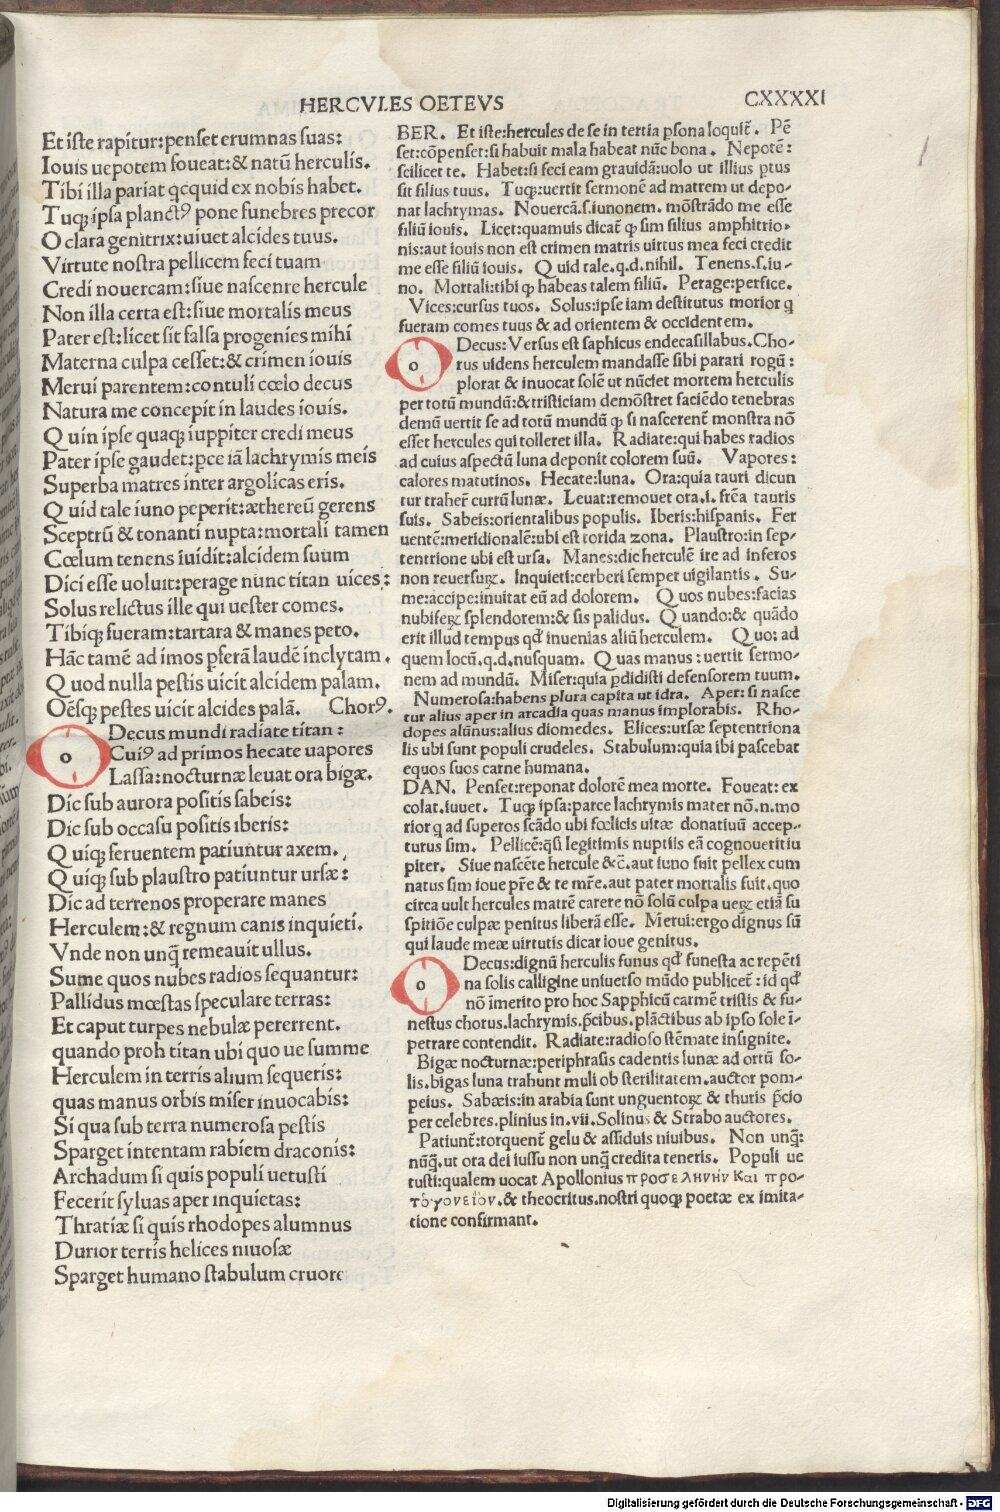 HERCVLES OETEVS
CXXXXI
Et iste rapitur:penset erumnas suas:
Iouis uepotem foueat:& natū herculis.
Tibi illa pariat qcquid ex nobis habet.
Tuqꝫ ipsa planctꝰ pone funebres precor
O clara genitrix:uiuet alcides tuus.
Virtute nostra pellicem feci tuam
Credi nouercam:siue nascente hercule
Non illa certa est:siue mortalis meus
Pater est:licet sit falsa progenies mihi
Materna culpa cesset:& crimen iouis
Merui parentem:contuli cœlo decus
Natura me concepit in laudes iouis.
Quin ipse quaqꝫ iuppiter credi meus
Pater ipse gaudet:pce iā lachrymis meis
Superba matres inter argolicas eris.
Quid tale iuno peperit:æthereū gerens
Sceptrū & tonanti nupta:mortali tamen
Cœlum tenens iuidit:alcidem suum
Dici esse uoluit:perage nunc titan uices:
Solus relictus ille qui uester comes.
Tibiqꝫ fueram:tartara & manes peto.
Hāc tamē ad imos pferā laudē inclytam.
Quod nulla pestis uicit alcidem palam.
Oēsqꝫ pestes uicit alcides palā. Chorꝰ.
o
Decus mundi radiate titan:
Cuiꝰ ad primos hecate uapores
Lassa:nocturnæ leuat ora bigæ.
Dic sub aurora positis sabeis:
Dic sub occasu positis iberis:
Quiqꝫ feruentem patiuntur axem.
Quiqꝫ sub plaustro patiuntur ursæ:
Dic ad terrenos properare manes
Herculem:& regnum canis inquieti.
Vnde non unq̄ remeauit ullus.
Sume quos nubes radios sequantur:
Pallidus mœstas speculare terras:
Et caput turpes nebulæ pererrent.
quando proh titan ubi quo ue summe
Herculem in terris alium sequeris:
quas manus orbis miser inuocabis:
Si qua sub terra numerosa pestis
Sparget intentam rabiem draconis:
Archadum si quis populi uetusti
Fecerit syluas aper inquietas:
Thratiæ si quis rhodopes alumnus
Durior terris helices niuosæ
Sparget humano stabulum cruore
BER. Et iste:hercules de se in tertia psona loquit̄. Pē
set:cōpenset:si habuit mala habeat nūc bona. Nepotē:
scilicet te. Habet:si feci eam grauidā:uolo ut illius ptus
sit filius tuus. Tuqꝫ:uertit sermonē ad matrem ut depo-
nat lachrymas. Nouercā.s.iunonem. mōstrādo me esse
filiū iouis. Licet:quamuis dicat̄ ꝙ sim filius amphitrio-
nis:aut iouis non est crimen matris uirtus mea feci credit
me esse filiū iouis. Quid tale.q.d.nihil. Tenens.s.iu-
no. Mortali:tibi ꝙ habeas talem filiū. Perage:perfice.
Vices:cursus tuos. Solus:ipse iam destitutus morior q
fueram comes tuus & ad orientem & occidentem.
o
Decus:Versus est saphicus endecasillabus.Cho-
rus uidens herculem mandasse sibi parari rogū:
plorat & inuocat solē ut nūciet mortem herculis
per totū mundū:& tristiciam demōstret faciēdo tenebras
demū uertit se ad totū mundū ꝙ si nascerent̄ monstra nō
esset hercules qui tolleret illa. Radiate:qui habes radios
ad cuius aspectū luna deponit colorem suū. Vapores:
calores matutinos. Hecate:luna. Ora:quia tauri dicun
tur traher̄ currū lunæ. Leuat:remouet ora.i.frēa tauris
suis. Sabeis:orientalibus populis. Iberis:hispanis. Fer
uentē:meridionalē:ubi est torida zona. Plaustro:in sep-
tentrione ubi est ursa. Manes:dic herculē ire ad inferos
non reuersuꝝ. Inquieti:cerberi semper uigilantis. Su-
me:accipe:inuitat eū ad dolorem. Quos nubes:facias
nubiferꝝ splendorem:& sis palidus. Quando:& quādo
erit illud tempus qd̄ inuenias aliū herculem. Quo: ad
quem locū.q.d.nusquam. Quas manus : uertit sermo-
nem ad mundū. Miser:quia pdidisti defensorem tuum.
Numerosa:habens plura capita ut idra. Aper: si nasce
tur alius aper in arcadia quas manus implorabis. Rho-
dopes alūnus:alius diomedes. Elices:ursæ septentriona
lis ubi sunt populi crudeles. Stabulum:quia ibi pascebat
equos suos carne humana.
DAN. Penset:reponat dolorē mea morte. Foueat: ex
colat.iuuet. Tuqꝫ ipsa:parce lachrymis mater nō.n.mo
rior q ad superos scādo ubi fœlicis uitæ donatiuū accep-
turus sim. Pellicē:qsi legitimis nuptiis eā cognouerit iu
piter. Siue nascēte hercule &c̄.aut iuno fuit pellex cum
natus sim ioue pr̄e & te mr̄e.aut pater mortalis fuit.quo
circa uult hercules matrē carere nō solū culpa ueꝝ etiā su
spitiōe culpæ penitus liberā esse. Merui:ergo dignus sū
qui laude meæ uirtutis dicar ioue genitus.
o
Decus:dignū herculis funus qd̄ funesta ac repēti
na solis calligine uniuerso mūdo publicet̄ : id qd̄
nō īmerito pro hoc Sapphicū carmē tristis & fu-
nestus chorus.lachrymis.p̄cibus.plāctibus ab ipso sole ī-
petrare contendit. Radiate:radioso stēmate insignite.
Bigæ nocturnæ:periphrasis cadentis lunæ ad ortū so-
lis.bigas luna trahunt muli ob sterilitatem.auctor pom-
peius. Sabæis:in arabia sunt unguentoꝝ & thuris p̄cio
per celebres.plinius in.vii.Solinus & Strabo auctores.
Patiunt̄:torquent̄ gelu & assiduis niuibus. Non unq̄:
nūq̄.ut ora dei iussu non unq̄ credita teneris. Populi ue
tusti:qualem uocat Apollonius προσεληνήν και προ-
τόγονείον.& theocritus.nostri quoqꝫ poetæ ex imita-
tione confirmant.
Digitalisierung gefördert durch die Deutsche Forschungsgemeinschaft - DFG